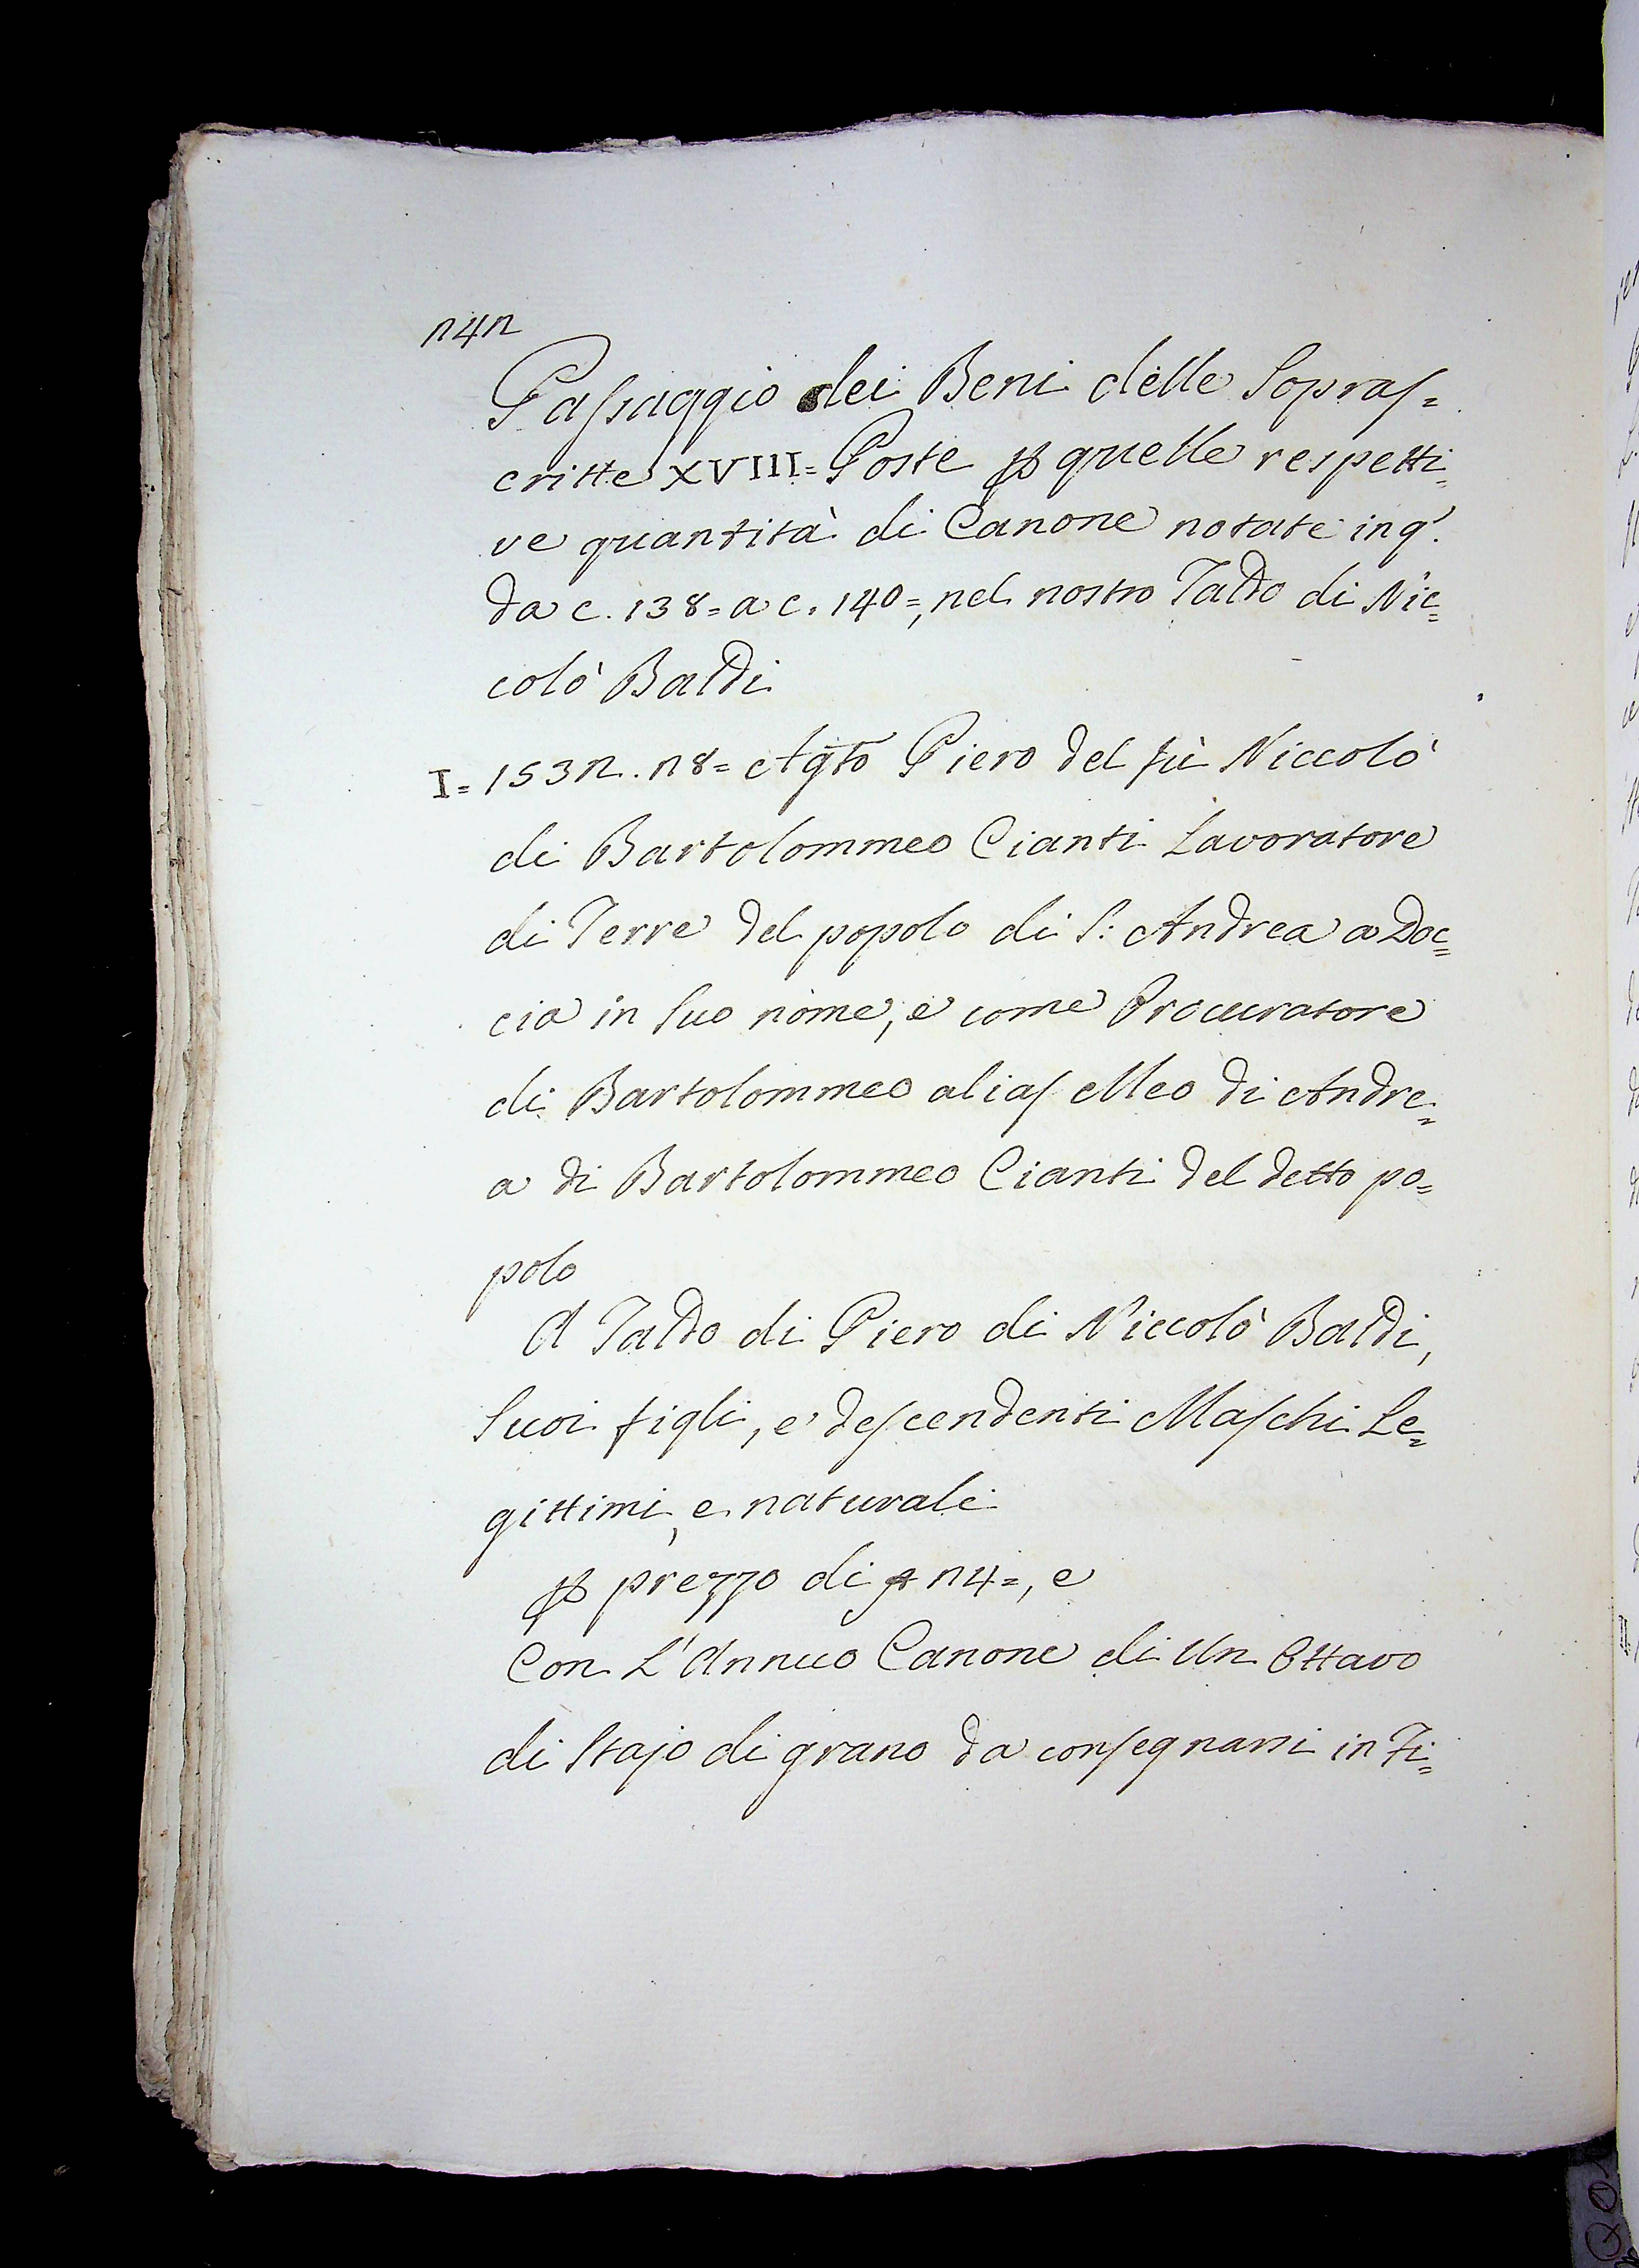 242
Passaggio dei Beni delle Sopras=
critte XVIII= Poste ꝑ quelle respetti=
ve quantità di Canone notate in q.º
da c. 138= a c. 140=, nel nostro Taldo di Nic=
colò Baldi
I= 1532. 28= Agto Piero del fù Niccolò
di Bartolommeo Cianti Lavoratore
di Terre del popolo di S: Andrea a Doc=
cia in Suo nome, e come Procuratore
di Bartolommeo alias Meo di Andre=
a di Bartolommeo Cianti del detto po=
polo
A Taldo di Piero di Niccolò Baldi,
Suoi figli, e descendenti Maschi Le=
gittimi, e naturali
ꝑ prezzo di 24=, e
Con L'Annuo Canone di Un Ottavo
di Stajo di grano da consegnarsi in Fi=